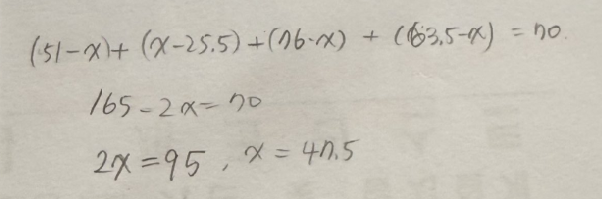 (51-x)+(x-25.5)+(76-x)+(63.5-x)=70.
165-2x=70
2x=95, x=47.5